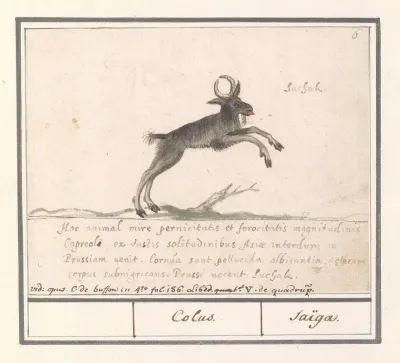 6
Suhak.
Hoc animal mire pernicitatis et ferocitatis magnitudinis
Capreoli ex vastis solitudinibus Asiæ interdum in
Prussiam venit. Cornua sunt pellucida albicantia,
corpus subnigricans. Prussi vocant Suhak.
vid: opus. C. de buffon in 4to fol. 186 de quadrup.
Colus.
Saïga.